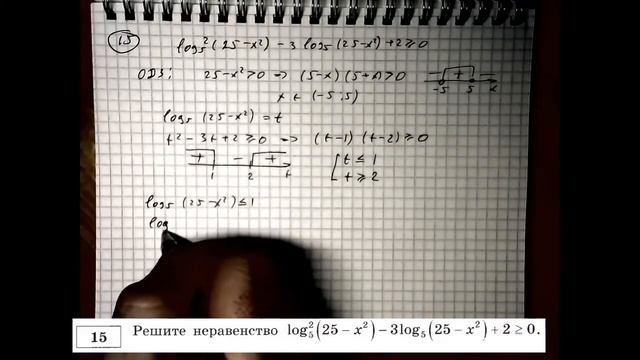 15
log₅²(25-x²) - 3 log₅(25-x²) + 2 ≥ 0
ОДЗ: 25-x² > 0 => (5-x)(5+x) > 0
- + -
-5 5 x
x ∈ (-5; 5)
log₅(25-x²) = t
t² - 3t + 2 ≥ 0 => (t-1)(t-2) ≥ 0
+ - +
1 2 t
[ t ≤ 1
t ≥ 2
log₅(25-x²) ≤ 1
log
15 Решите неравенство log₅²(25 − x²) − 3log₅(25 − x²) + 2 ≥ 0.